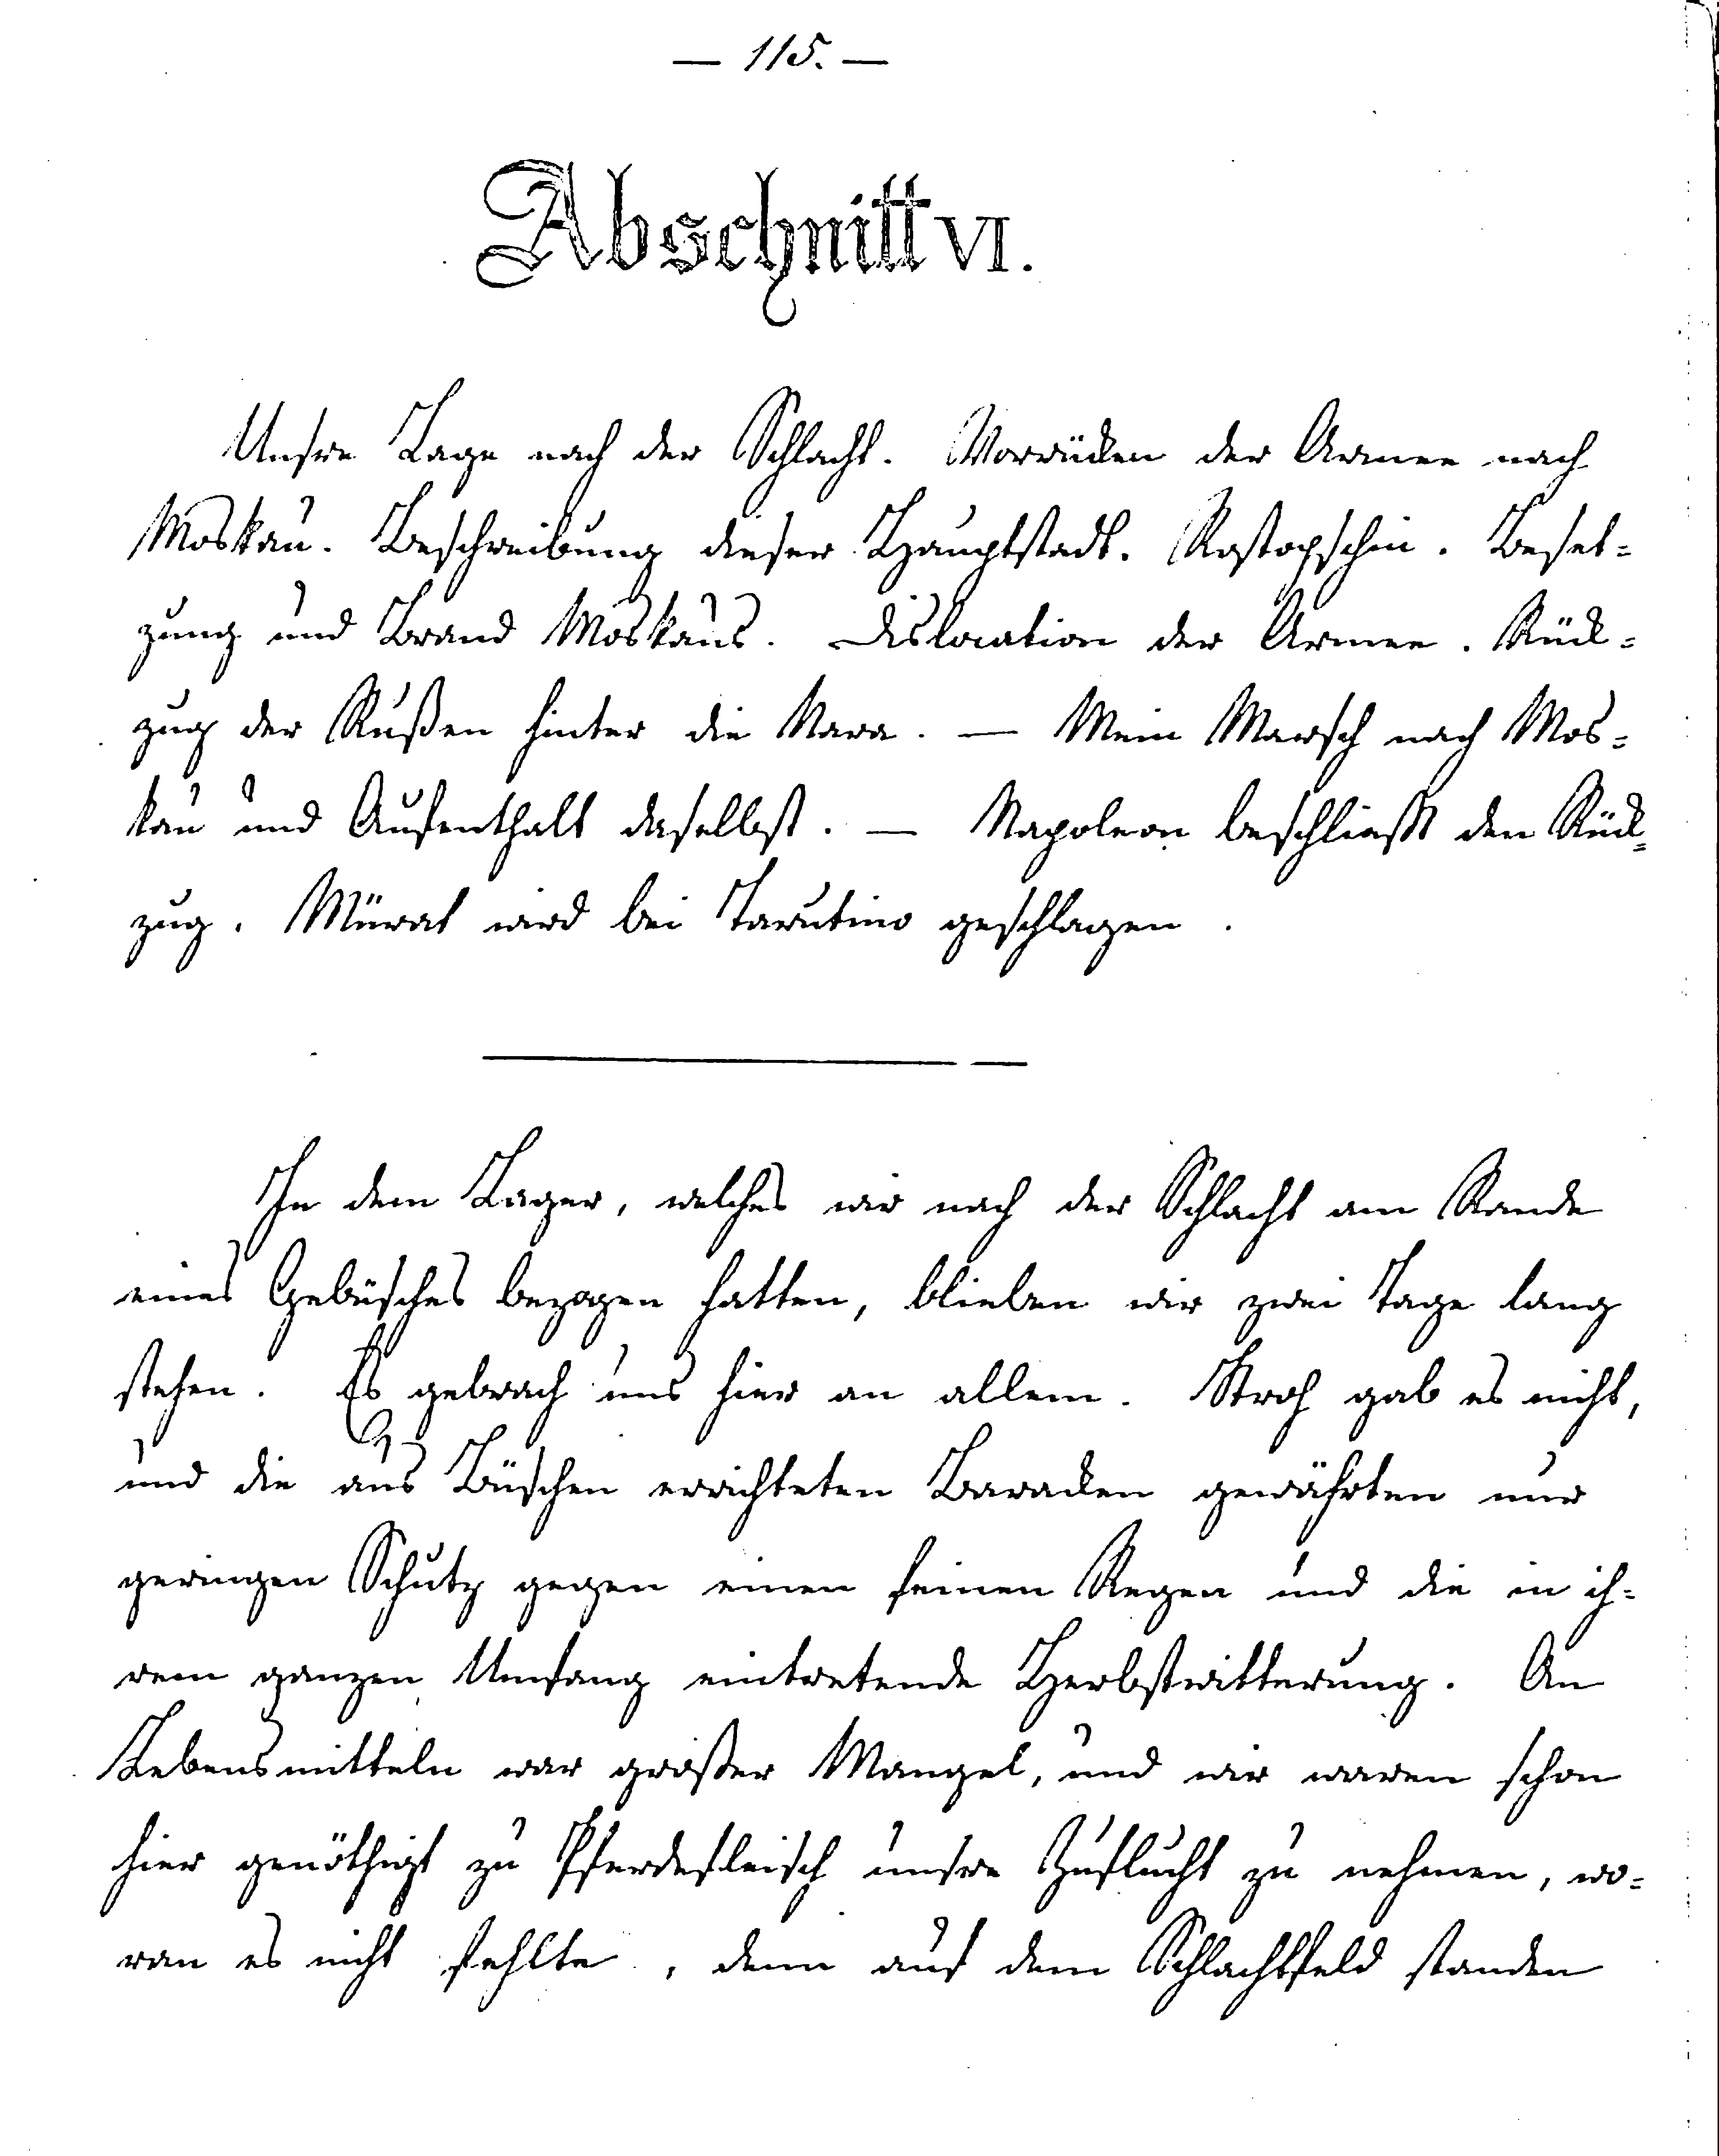 — 115. —
Abschnitt VI.
Unsre Lage nach der Schlacht. Vorrücken der Armee nach
Moskau. Beschreibung dieser Hauptstadt. Rostopschin. Beset-
zung und Brand Moskaus. Dislocation der Armee. Rück-
zug der Rußen hinter die Nara. — Mein Marsch nach Mos-
kau und Aufenthalt daselbst. — Napoleon beschließt den Rück-
zug. Mürat wird bei Tarutino geschlagen.
In dem Lager, welches wir nach der Schlacht am Rande
eines Gebüsches bezogen hatten, blieben wir zwei Tage lang
stehen. Es gebrach uns hier an allem. Stroh gab es nicht,
und die aus Büschen errichteten Baracken gewährten nur
geringen Schutz gegen einen feinen Regen und die in ih-
rem ganzen Umfang eintretende Herbstwitterung. An
Lebensmitteln war großer Mangel, und wir waren schon
hier genöthigt zu Pferdefleisch unsre Zuflucht zu nehmen, wo-
ran es nicht fehlte, denn auf dem Schlachtfeld standen